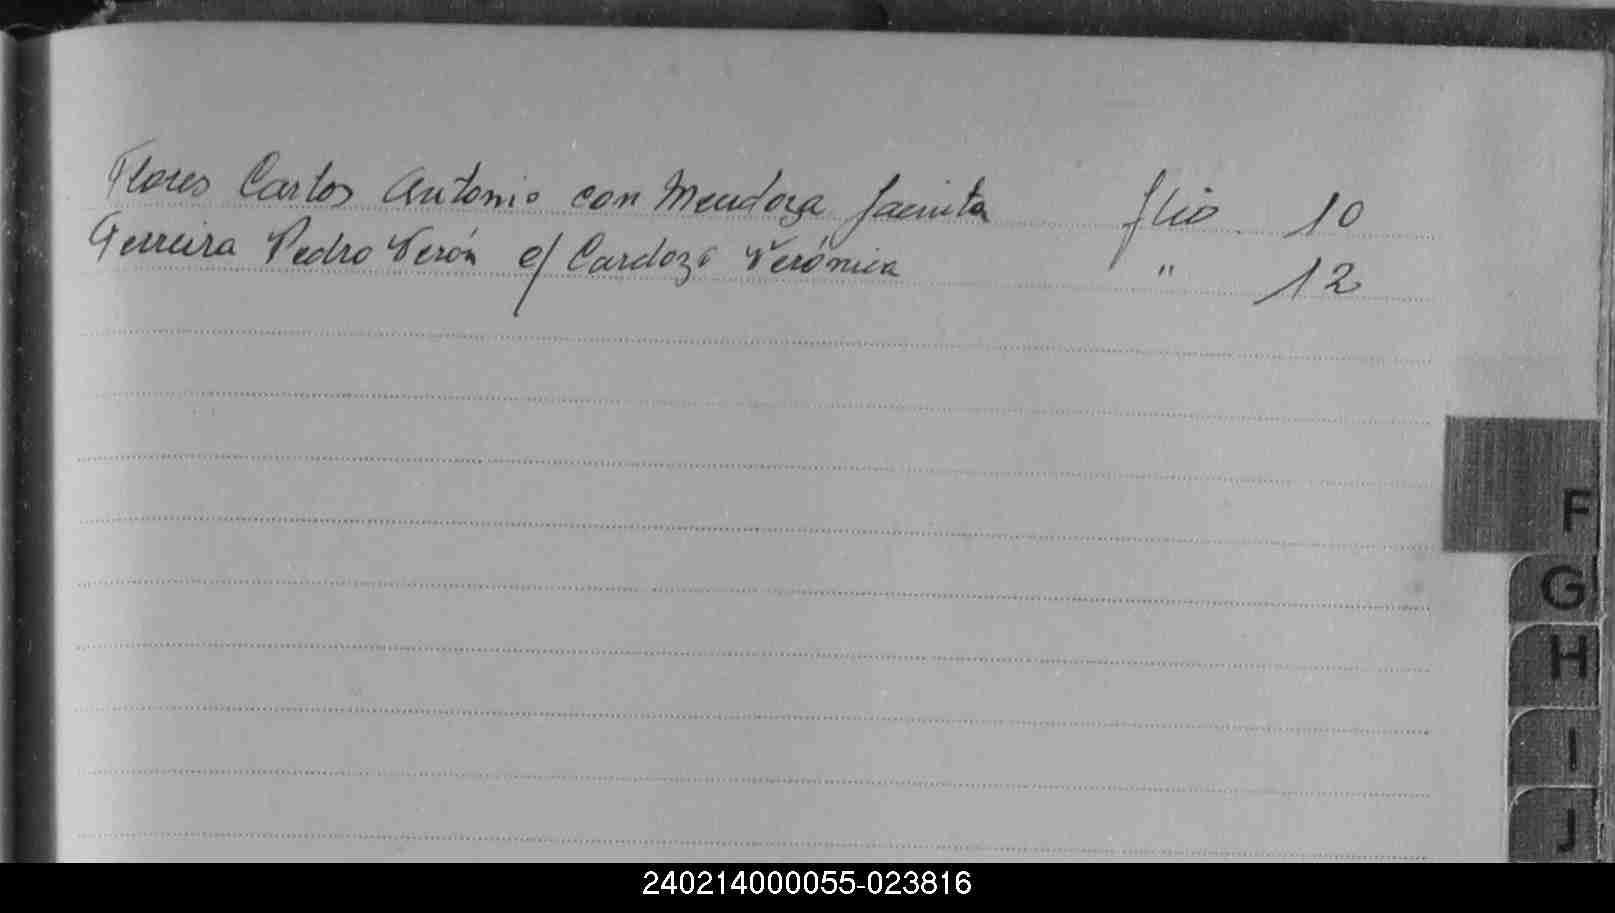 Flores Carlos Antonio con Mendoza Jacinta flio 10
Ferreira Pedro Verón c/ Cardozo Verónica " 12
F
G
H
I
J
240214000055-023816